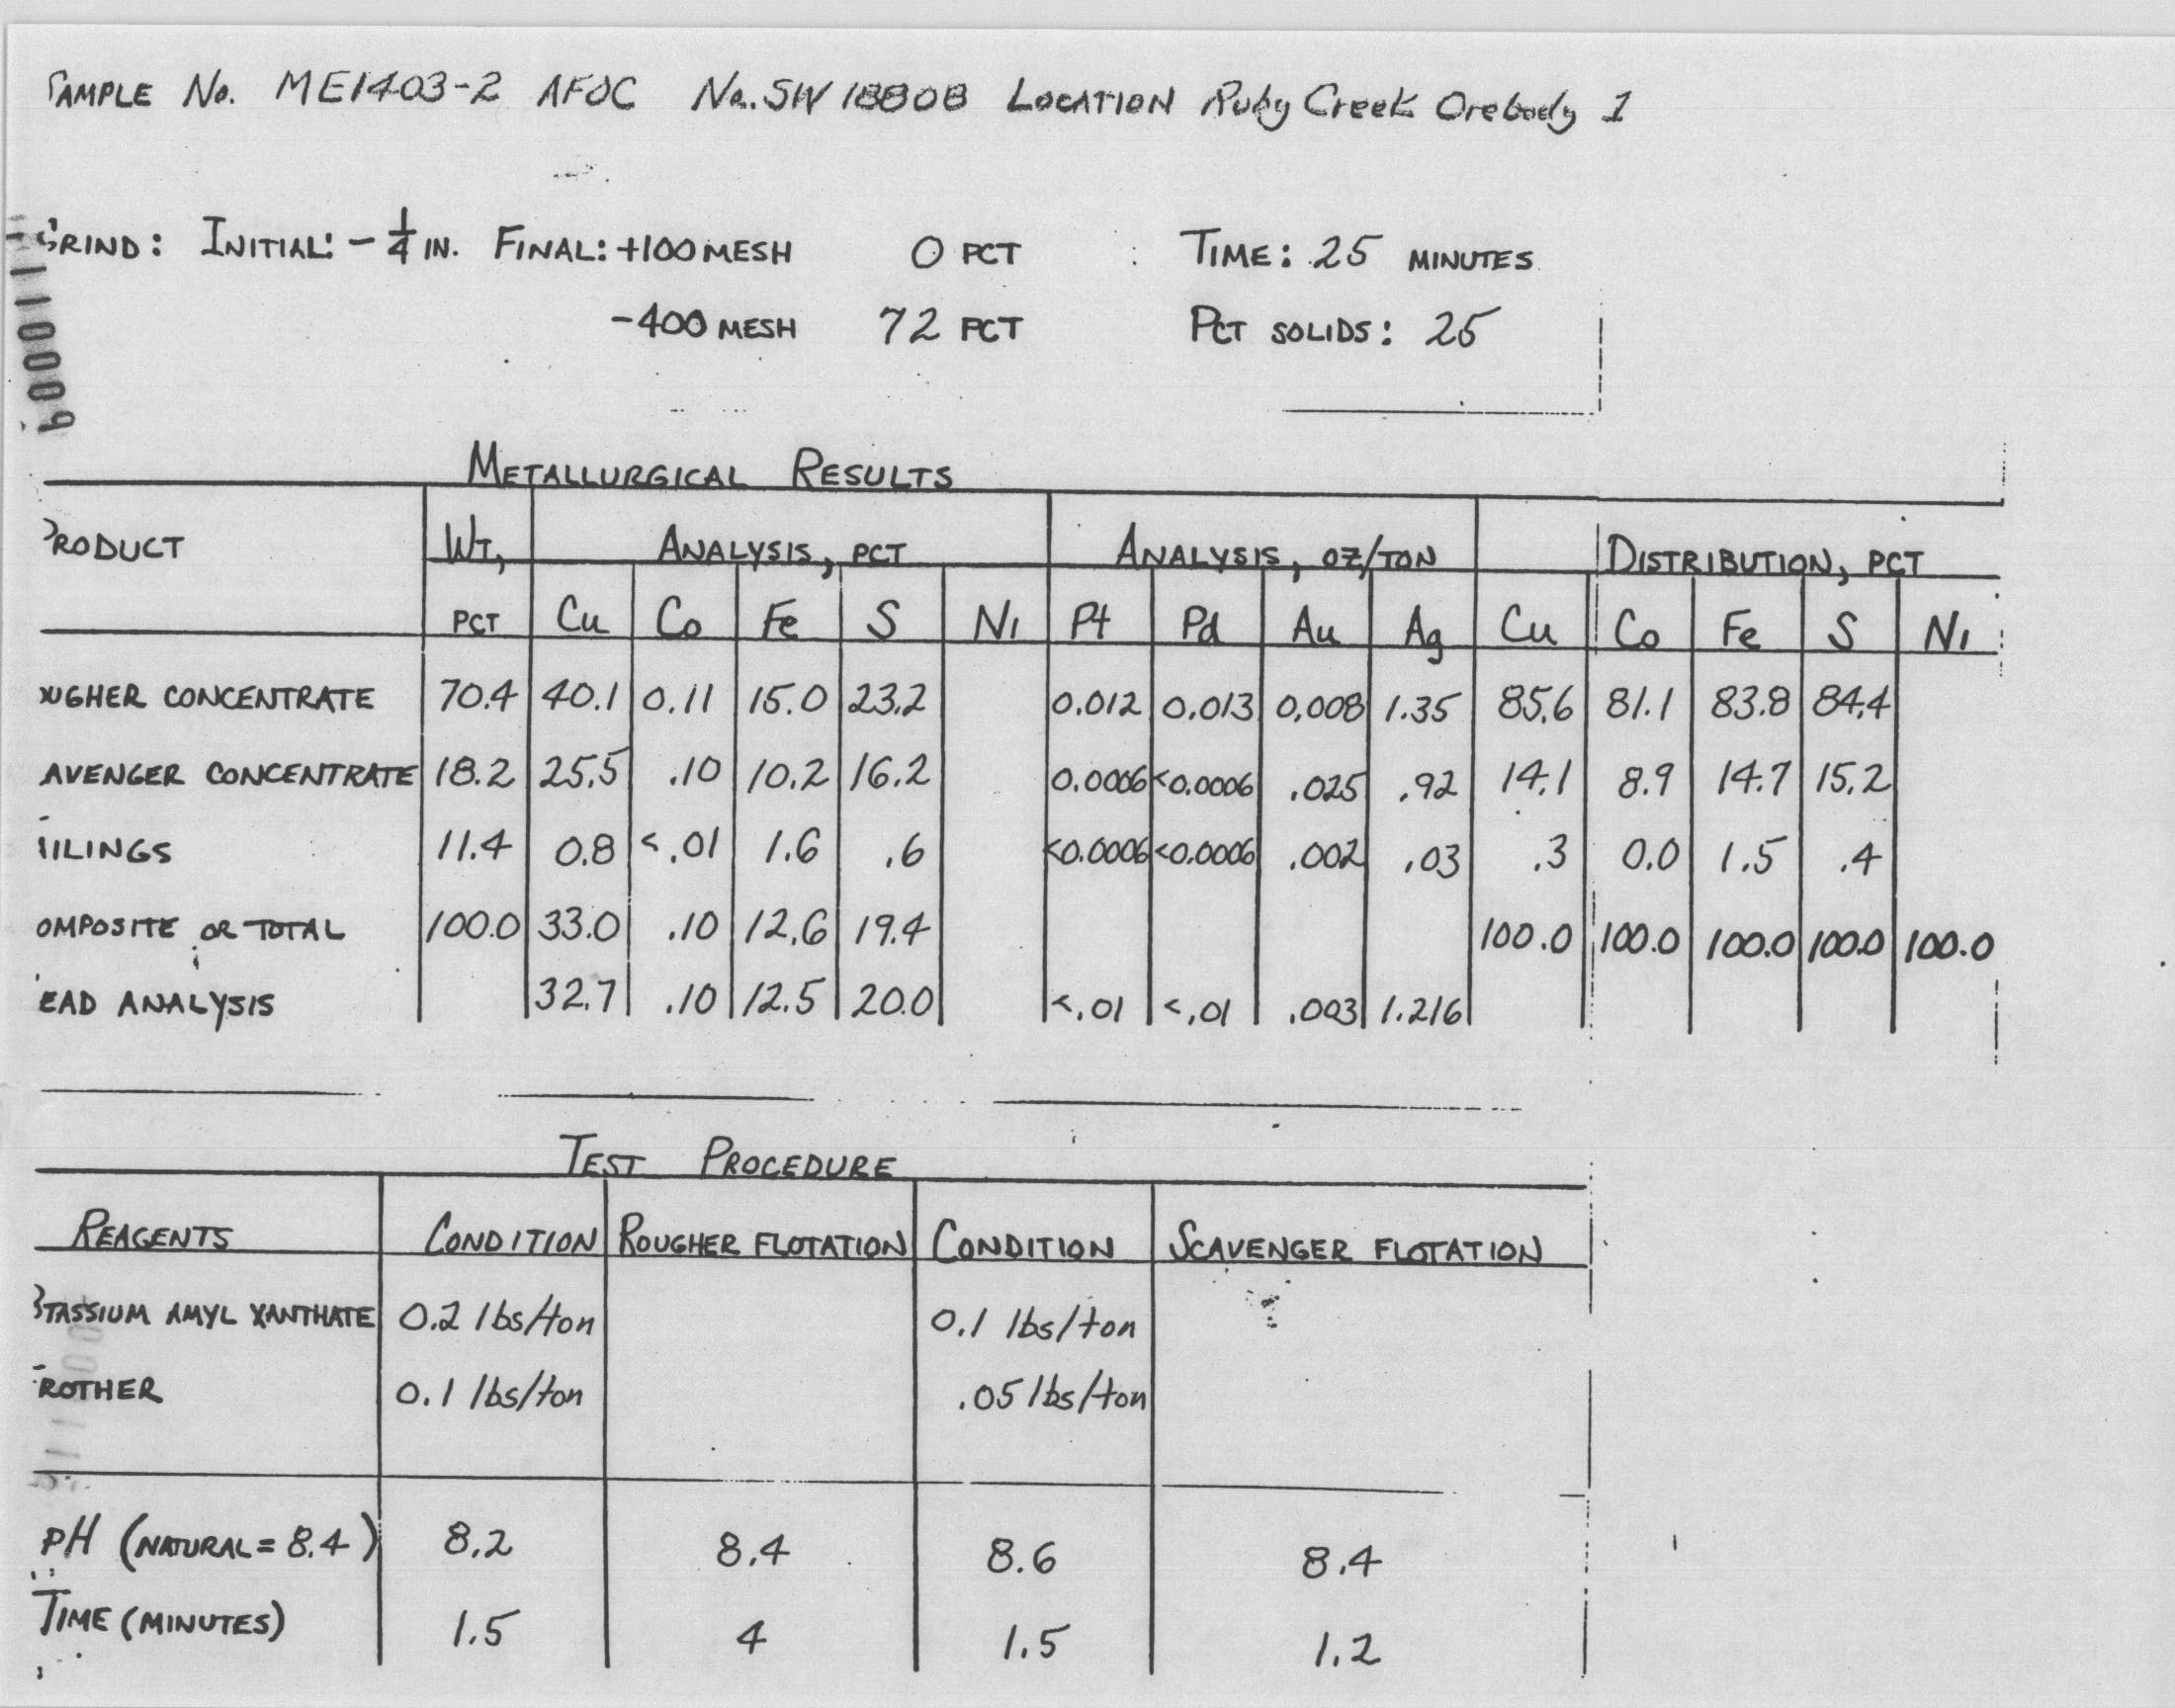 SAMPLE No. ME1403-2 AFOC No. SW 18808 LOCATION Ruby Creek Orebody 1
GRIND: INITIAL: -1/4 IN. FINAL: +100 MESH 0 PCT TIME: 25 MINUTES
-400 MESH 72 PCT PCT SOLIDS: 25
METALLURGICAL RESULTS
PRODUCT WT, ANALYSIS, PCT ANALYSIS, OZ/TON DISTRIBUTION, PCT
PCT Cu Co Fe S Ni Pt Pd Au Ag Cu Co Fe S Ni
OUGHER CONCENTRATE 70.4 40.1 0.11 15.0 23.2 0.012 0.013 0.008 1.35 85.6 81.1 83.8 84.4
AVENGER CONCENTRATE 18.2 25.5 .10 10.2 16.2 0.0006 <0.0006 .025 .92 14.1 8.9 14.7 15.2
AILINGS 11.4 0.8 <.01 1.6 .6 <0.0006 <0.0006 .002 .03 .3 0.0 1.5 .4
OMPOSITE OR TOTAL 100.0 33.0 .10 12.6 19.4 100.0 100.0 100.0 100.0 100.0
EAD ANALYSIS 32.7 .10 12.5 20.0 <.01 <.01 .003 1.216
TEST PROCEDURE
REAGENTS CONDITION ROUGHER FLOTATION CONDITION SCAVENGER FLOTATION
OTASSIUM AMYL XANTHATE 0.2 lbs/ton 0.1 lbs/ton
FROTHER 0.1 lbs/ton .05 lbs/ton
pH (NATURAL = 8.4) 8.2 8.4 8.6 8.4
TIME (MINUTES) 1.5 4 1.5 1.2